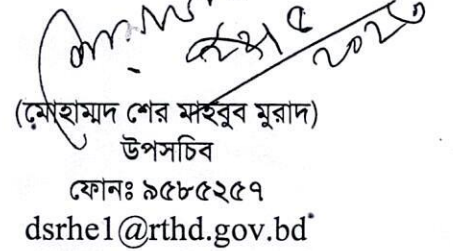 (মোহাম্মদ শের মাহবুব মুরাদ)
উপসচিব
ফোনঃ ৯৫৮৫২৫৭
dsrhe1@rthd.gov.bd